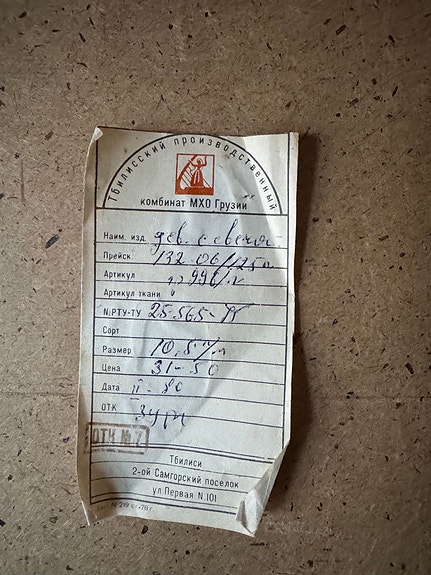 Тбилисский производственный
комбинат МХО Грузии
Наим. изд. дев. с свечой
Прейск 132-06/125а
Артикул
Артикул ткани
N:РТУ-ТУ 25.565-
Сорт
Размер 10,5
Цена 31-50
Дата II-80
ОТК
ОТК №
Тбилиси
2-ой Самгорский поселок
ул Первая N.101